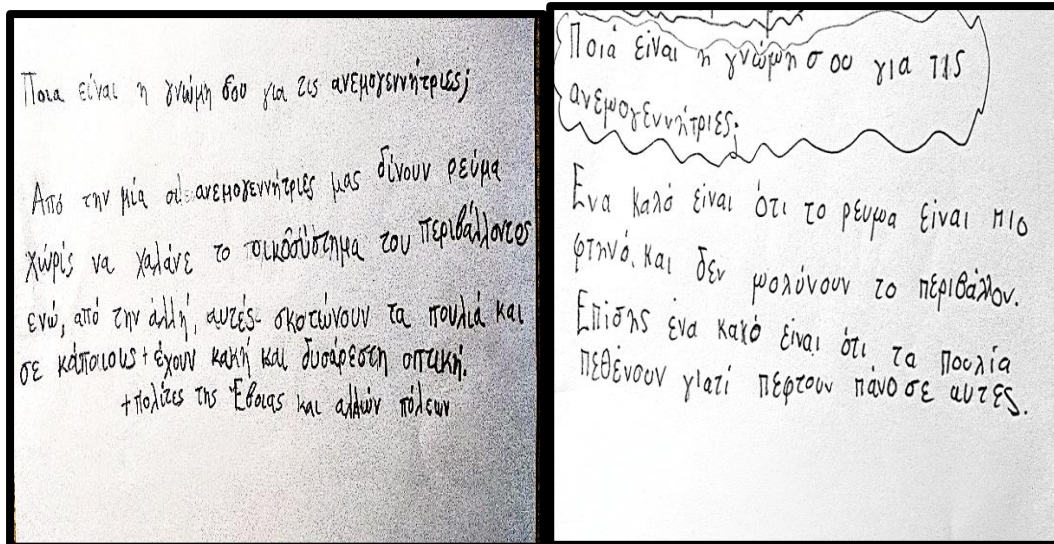 Ποια είναι η γνώμη σου για τις ανεμογεννήτριες;
Από την μία οι ανεμογεννήτριες μας δίνουν ρεύμα
χωρίς να χαλάνε το οικοσύστημα του περιβάλλοντος
ενώ, από την άλλή, αυτές σκοτώνουν τα πουλιά και
σε κάποιους + έχουν κακή και δυσάρεστη οπτική.
+πολίτες της Εβοιας και αλλών πόλεων
Ποιά είναι η γνώμη σου για τις
ανεμογεννήτριες;
Ενα καλό είναι ότι το ρευμα είναι πιο
φτηνό. και δεν μολύνουν το περιβάλλον.
Επίσης ένα κακό είναι ότι τα πουλία
πεθένουν γιατί πεφτουν πάνο σε αυτές.